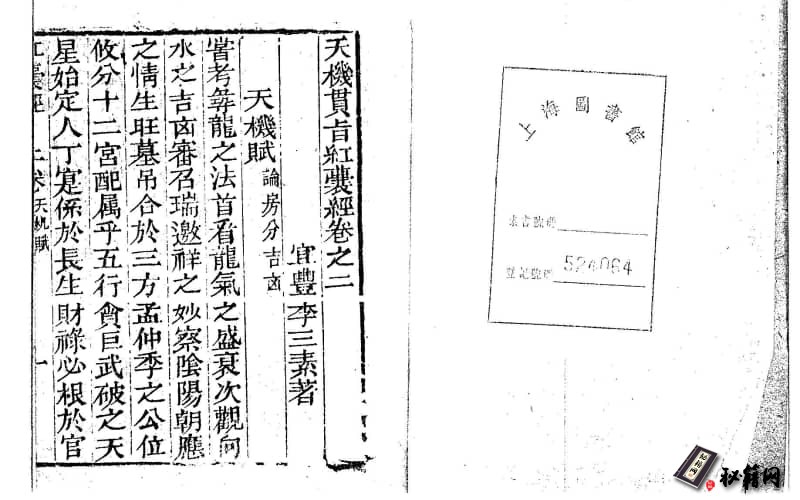 上海圖書館
索書號碼
登記號碼 524064
天機貫旨紅囊經卷之二
宜豐李三素著
天機賦 論房分吉凶
嘗考彝龍之法首看龍氣之盛衰次觀向
水之吉凶審召瑞邀祥之妙察陰陽朝應
之情生旺墓吊合於三方孟仲季之公位
攸分十二宮配属乎五行貪巨武破之天
星始定人丁寔係於長生財祿必根於官
紅囊經 二卷 天机賦 一
秘籍网